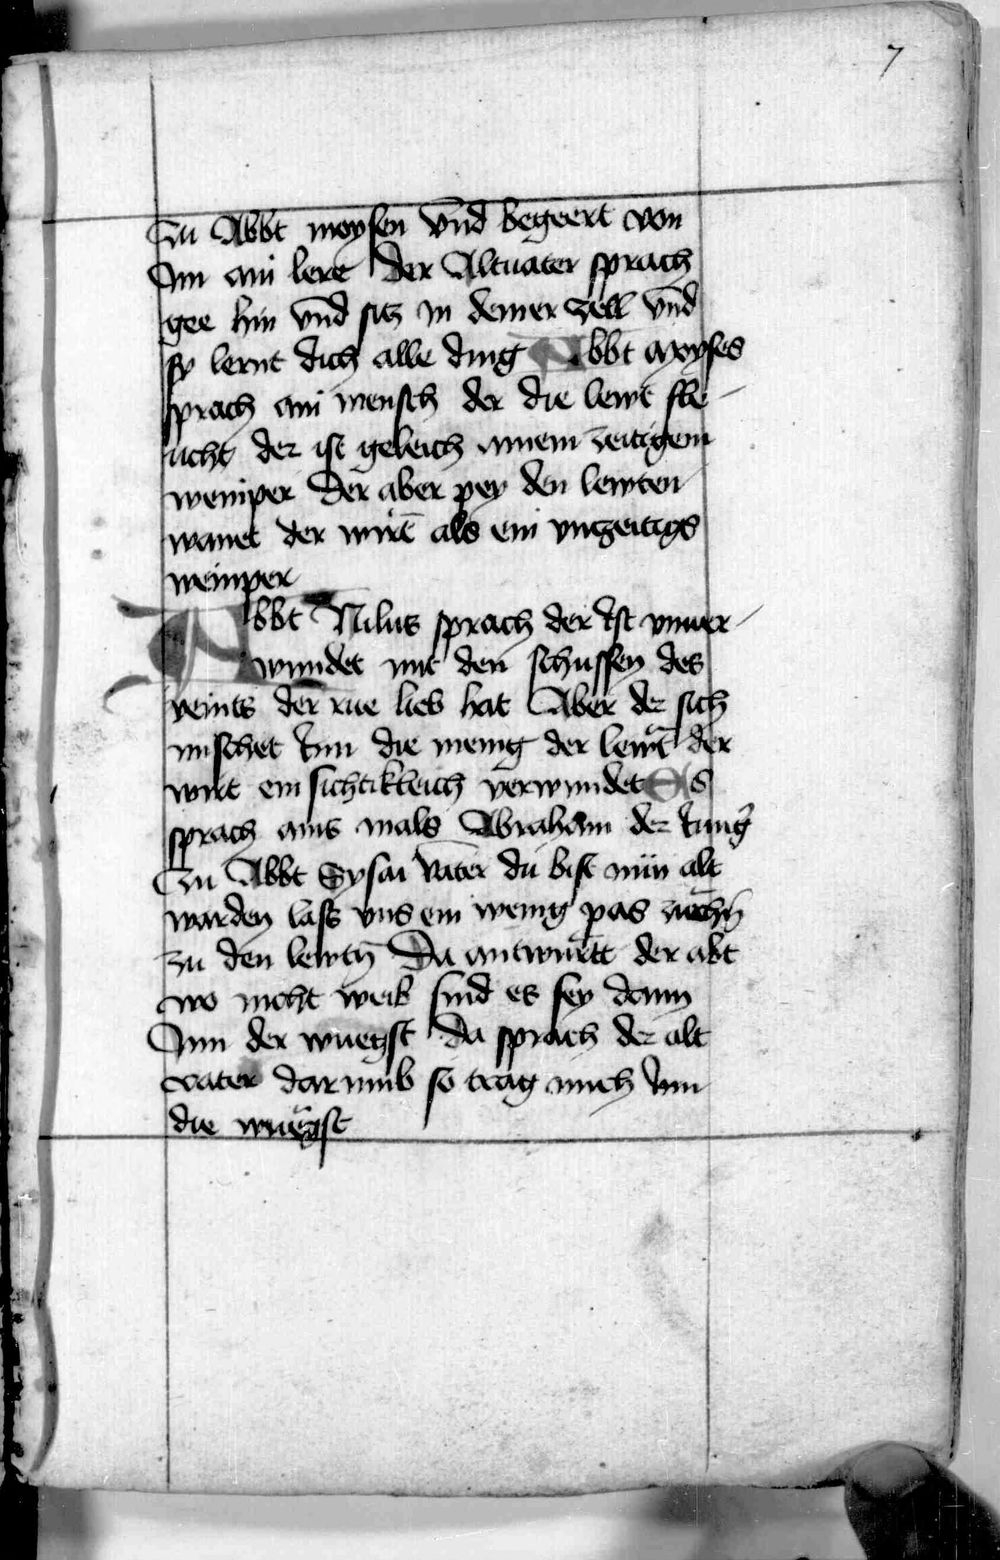 7
Zu Abbt moysen vnd begeert von
Im ain lere der Altuater sprach
gee hin vnd sitz in deiner zell vnd
sy lernt dich alle ding Abbt moyses
sprach ain mensch der die lewt fle-
ucht der ist geleich ainem zeitigem
weinper Der aber pey den lewten
wanet der wirt als ein vnzeitigs
weinper
Abbt Nilus sprach der Ist vnuer-
wundet mit den schussen des
veints der rue lieb hat Aber der sich
mischet Inn die menig der lewt der
wirt ein sichtikleich verwundet Es
sprach ains mals Abraham der Iung
Zu Abbt Sysai vater du bist nun alt
warden lass vns ein wenig pas
zu den lewtn Da antwurtt der abt
wo nicht weib sind es sey dann
Inn der wuegst da sprach der alt
vater darumb so trag mich Inn
die wuegst